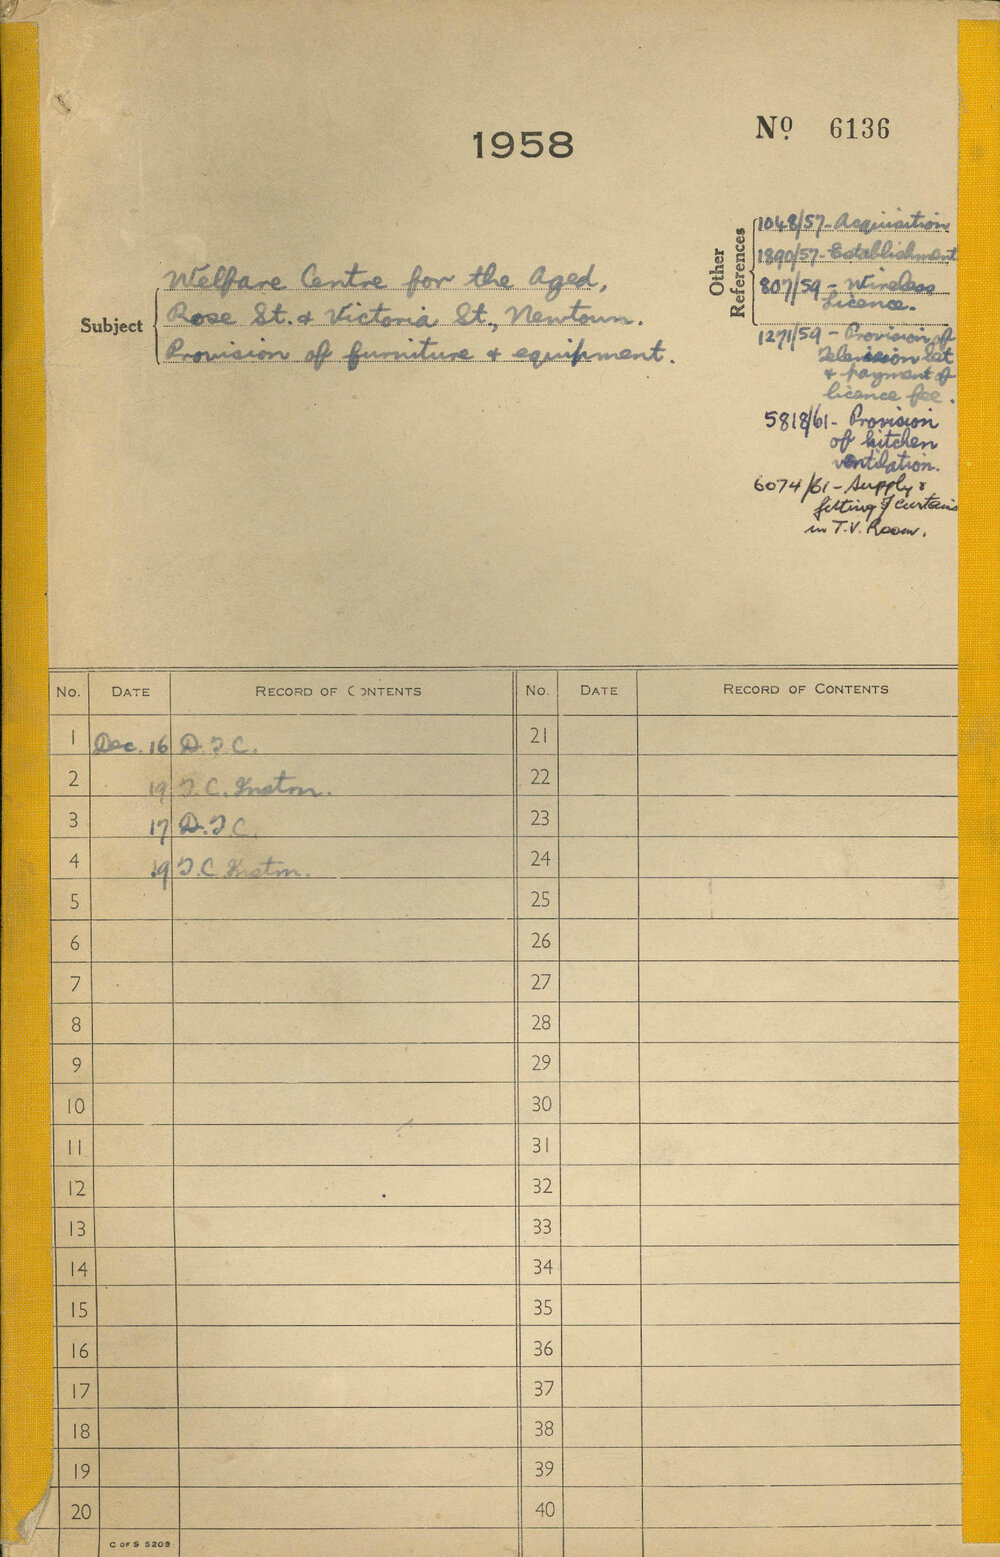 1958
Nº 6136
Subject
Welfare Centre for the Aged,
Rose St. & Victoria St., Newtown.
Provision of furniture & equipment.
Other
References
1048/57 - Acquisition
1890/57 - Establishment
807/59 - Wireless
Licence.
1271/59 - Provision of
Television Set
& payment of
licence fee.
5818/61 - Provision
of kitchen
ventilation.
6074/61 - Supply &
fitting of curtains
in T.V. Room.
No. DATE RECORD OF CONTENTS No. DATE RECORD OF CONTENTS
1 Dec. 16 D.T.C. 21
2 19 T.C. 22
3 17 D.T.C. 23
4 19 T.C. 24
5 25
6 26
7 27
8 28
9 29
10 30
11 31
12 32
13 33
14 34
15 35
16 36
17 37
18 38
19 39
20 40
C OF S 5209